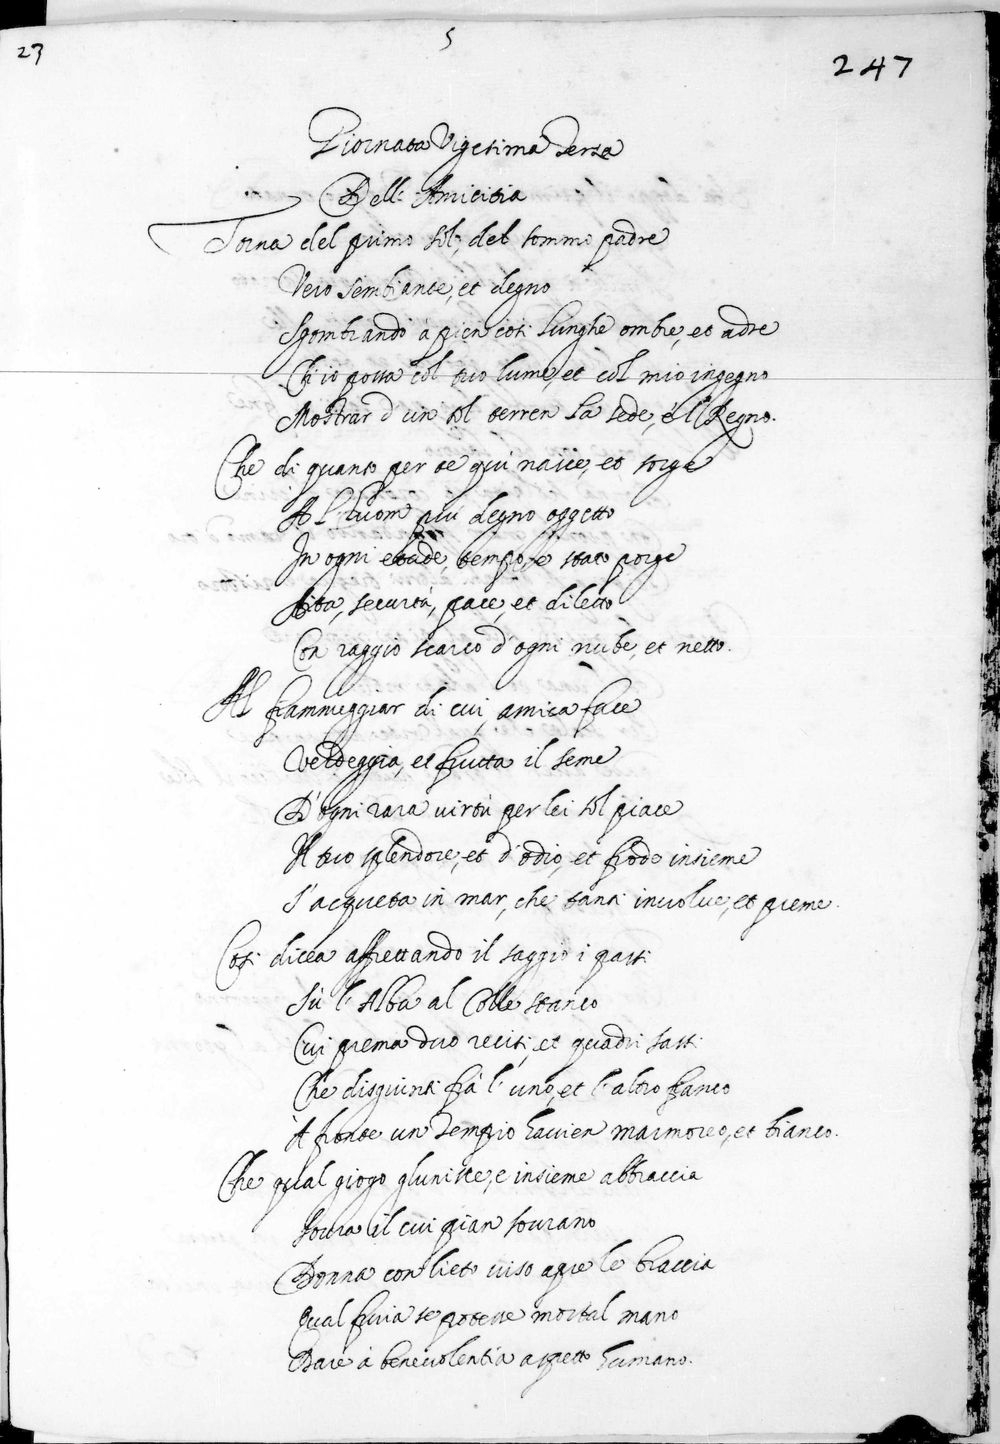 23
5
247
Giornata Vigesima Terza
Dell' Amicitia
Torna del primo sol, del sommo padre
Vero sembiante, et degno
Sgombrando à pien così lunghe ombre, et adre
Ch'io possa col tuo lume, et col mio ingegno
Mostrar d'un sol terren la sede, e'l Regno.
Che di quanto per te qui nasce, et sorge
Al'huom più degno oggetto
In ogni etade, tempo, e stato porge
Aita, securtà, pace, et diletto
Con raggio scarco d'ogni nube, et netto.
Al fiammeggiar di cui, amica face
Verdeggia, et frutta il seme
D'ogni rara virtù per lei sol piace
Il tuo splendore, et d'odio, et frode insieme
S'acqueta in mar, che tanti involve, et preme.
Così dicea affrettando il saggio i passi
Sù l'Alba al Colle stanco
Cui prema duo recisi, et quadri sassi
Che disgiunti frà l'uno, et l'altro fianco
À fronte un Tempio havien marmoreo, et bianco.
Che qual giogo gl'unisce, e insieme abbraccia
Sovra il cui pian sovrano
Donna con lieto viso apre le braccia
Qual furia se potesse mortal mano
Dare à benevolentia aspetto humano.